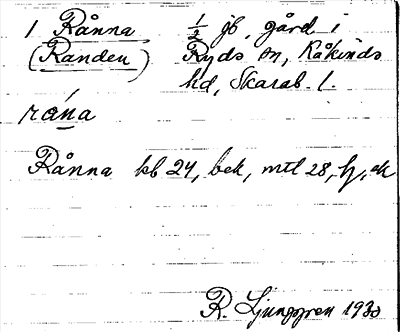 1 Rånna ½ jb, gård i
(Randen) Ryds sn, Kåkinds
hd, Skarab. l.
rǻna
Rånna kb 24, bek, mtl 28, hj, ek
R. Ljunggren 1930